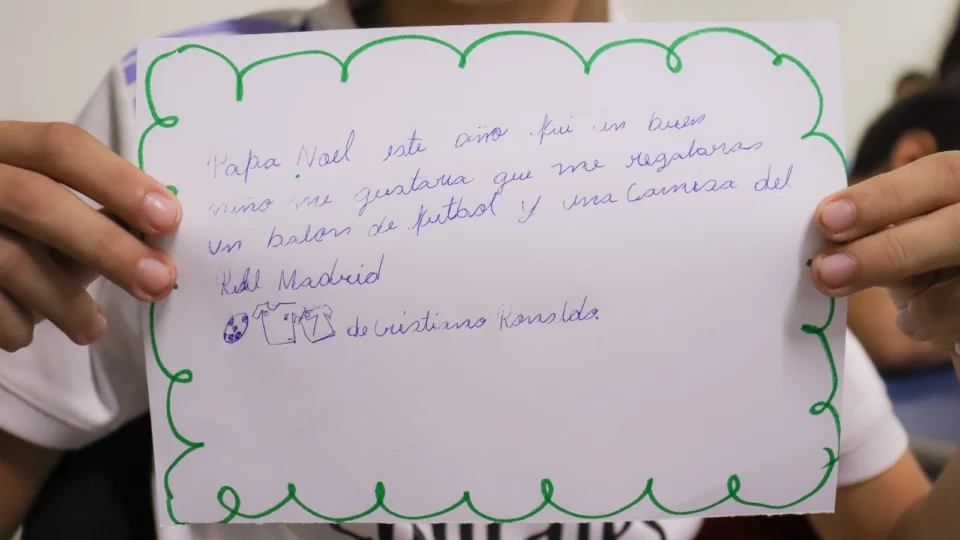 Papa Noel este año fui un buen
niño me gustaria que me regalaras
un balon de futbol y una Camisa del
Real Madrid
7 de Cristiano Ronaldo.